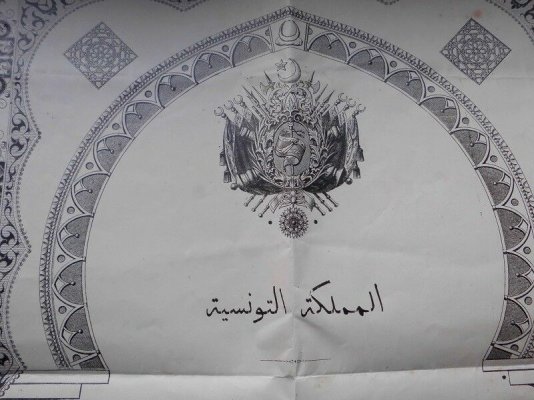 المملكة التونسية